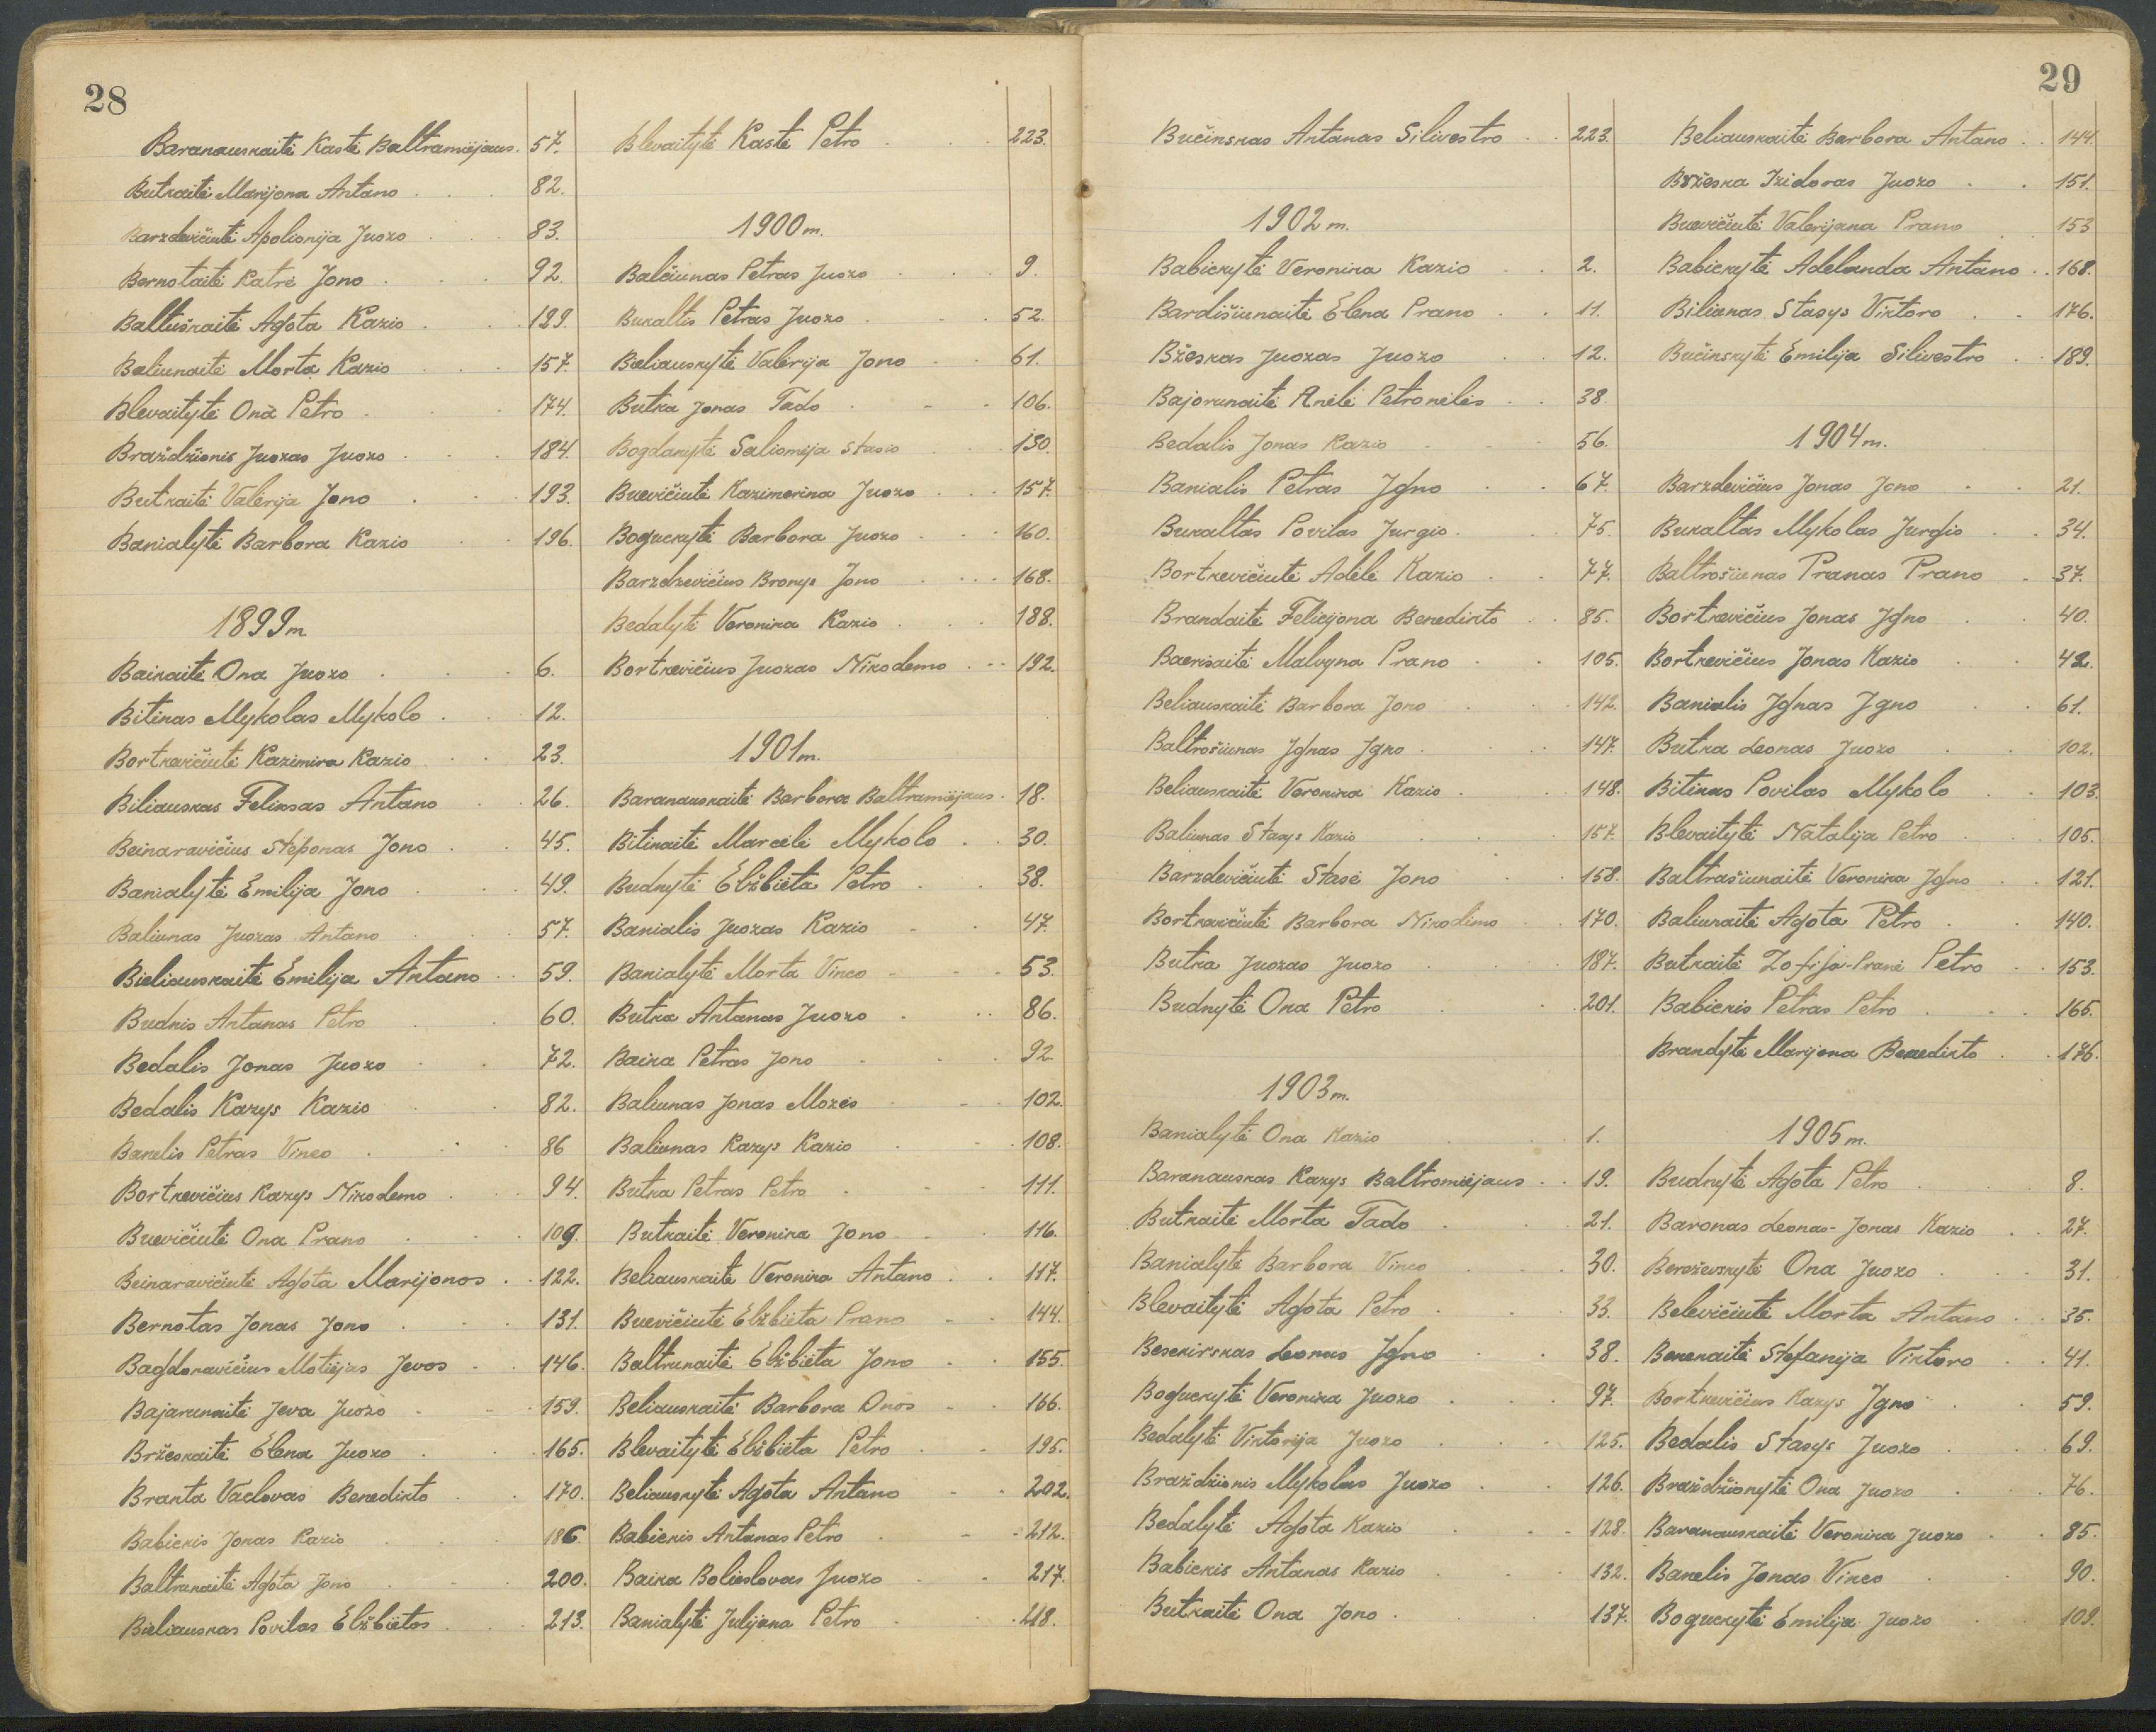 28
Baranauskaitė Kastė Baltramiejaus. 57.
Butkaitė Marijona Antano 82.
Barzdevičiutė Apolionija Juozo 83.
Bernotaitė Katrė Jono 92.
Baltuškaitė Agota Kazio 129.
Baliunaitė Morta Kazio 157.
Blevaitytė Ona Petro 174.
Braždžionis Juozas Juozo 184.
Butkaitė Valerija Jono 193.
Banialytė Barbora Kazio 196.
1899 m
Baikaitė Ona Juozo 6.
Bitinas Mykolas Mykolo 12.
Bortkevičiutė Kazimira Kazio 23.
Biliauskas Feliksas Antano 26.
Beinaravičius Steponas Jono 45.
Banialytė Emilija Jono 49.
Baliunas Juozas Antano 57.
Bieliauskaitė Emilija Antano 59.
Budnis Antanas Petro 60.
Bedalis Jonas Juozo 72.
Bedalis Kazys Kazio 82.
Banelis Petras Vinco 86
Bortkevičius Kazys Nikodemo 94.
Buevičiutė Ona Prano 109.
Beinaravičiutė Agota Marijonos 122.
Bernotas Jonas Jono 131.
Bagdonavičius Motiejus Jevos 146.
Bajarunaitė Jeva Juozo 159.
Bržeskaitė Elena Juozo 165.
Branta Vaclovas Benedikto 170.
Babickis Jonas Kazio 186.
Baltrunaitė Agota Jono 200.
Bieliauskas Povilas Elžbietos 213.
Blevaitytė Kastė Petro 223.
1900 m.
Balčiunas Petras Juozo 9.
Bukaltis Petras Juozo 52.
Bieliauskytė Valerija Jono 61.
Butka Jonas Tado 106.
Bogdanytė Saliomėja Stasio 130.
Buevičiutė Kazimerina Juozo 157.
Boguckytė Barbora Juozo 160.
Barzdzevičius Bronys Jono 168.
Bedalytė Veronika Kazio 188.
Bortkevičius Juozas Nikodemo 192.
1901 m.
Baranauskaitė Barbora Baltramiejaus 18.
Bitinaitė Marcelė Mykolo 30.
Budnytė Elžbieta Petro 38.
Banialis Juozas Kazio 47.
Banialytė Morta Vinco 53.
Butka Antanas Juozo 86.
Baika Petras Jono 92
Baliunas Jonas Mozės 102.
Baliunas Kazys Kazio 108.
Butka Petras Petro 111.
Butkaitė Veronika Jono 116.
Beliauskaitė Veronika Antano 117.
Buevičiutė Elžbieta Prano 144.
Baltrunaitė Elžbieta Jono 155.
Beliauskaitė Barbora Onos 166.
Blevaitytė Elžbieta Petro 195.
Beliauskytė Agota Antano 202.
Babickis Antanas Petro 212.
Baika Bolieslovas Juozo 217.
Banialytė Julijona Petro 218.
29
Bučinskas Antanas Silivestro 223.
1902 m.
Babickytė Veronika Kazio 2.
Bardišiunaitė Elena Prano 11.
Bžeskas Juozas Juozo 12.
Bajorunaitė Anelė Petronėlės 38
Bedalis Jonas Kazio 56.
Banialis Petras Igno 67.
Bukaltas Povilas Jurgio 75.
Bortkevičiutė Adelė Kazio 77.
Brandaitė Felicijona Benedikto 85.
Malvyna Prano 105.
Beliauskaitė Barbora Jono 142.
Baltrošiunas Ignas Igno 147.
Beliauskaitė Veronika Kazio 148.
Baliunas Stasys Kazio 157.
Barzdevičiutė Stasė Jono 158.
Bortkevičiutė Barbora Nikodimo 170.
Butka Juozas Juozo 187.
Budnytė Ona Petro 201.
1903 m.
Banialytė Ona Kazio 1.
Baranauskas Kazys Baltromiejaus 19.
Butkaitė Morta Tado 21.
Banialytė Barbora Vinco 30.
Blevaitytė Agota Petro 33.
Besekirskas Leonas Igno 38.
Boguckytė Veronika Juozo 97.
Bedalytė Viktorija Juozo 125.
Braždžionis Mykolas Juozo 126.
Bedalytė Agota Kazio 128.
Babickis Antanas Kazio 132.
Butkaitė Ona Jono 137.
Beliauskaitė Barbora Antano 144.
Bržeska Izidoras Juozo 151.
Buevičiutė Valerijana Prano 153
Babickytė Adelanda Antano 168.
Bilianas Stasys Viktoro 176.
Bučinskytė Emilija Silivestro 189.
1904 m.
Barzdevičius Jonas Jono 21.
Bukaltas Mykolas Jurgio 34.
Baltrošiunas Pranas Prano 37.
Bortkevičius Jonas Igno 40.
Bortkevičius Jonas Kazio 42.
Banialis Ignas Igno 61.
Butka Leonas Juozo 102.
Bitinas Povilas Mykolo 103.
Blevaitytė Natalija Petro 105.
Baltrašiunaitė Veronika Igno 121.
Baliunaitė Agota Petro 140.
Butkaitė Zofija-Pranė Petro 153.
Babickis Petras Petro 165.
Brandytė Marijona Benedikto 176.
1905 m.
Budnytė Agota Petro 8.
Baronas Leonas-Jonas Kazio 27.
Bereževskytė Ona Juozo 31.
Belevičiutė Morta Antano 35.
Benekaitė Stefanija Viktoro 41.
Bortkevičius Kazys Igno 59.
Bedalis Stasys Juozo 69.
Braždžionytė Ona Juozo 76.
Baranauskaitė Veronika Juozo 85.
Banelis Jonas Vinco 90.
Boguckytė Emilija Juozo 109.